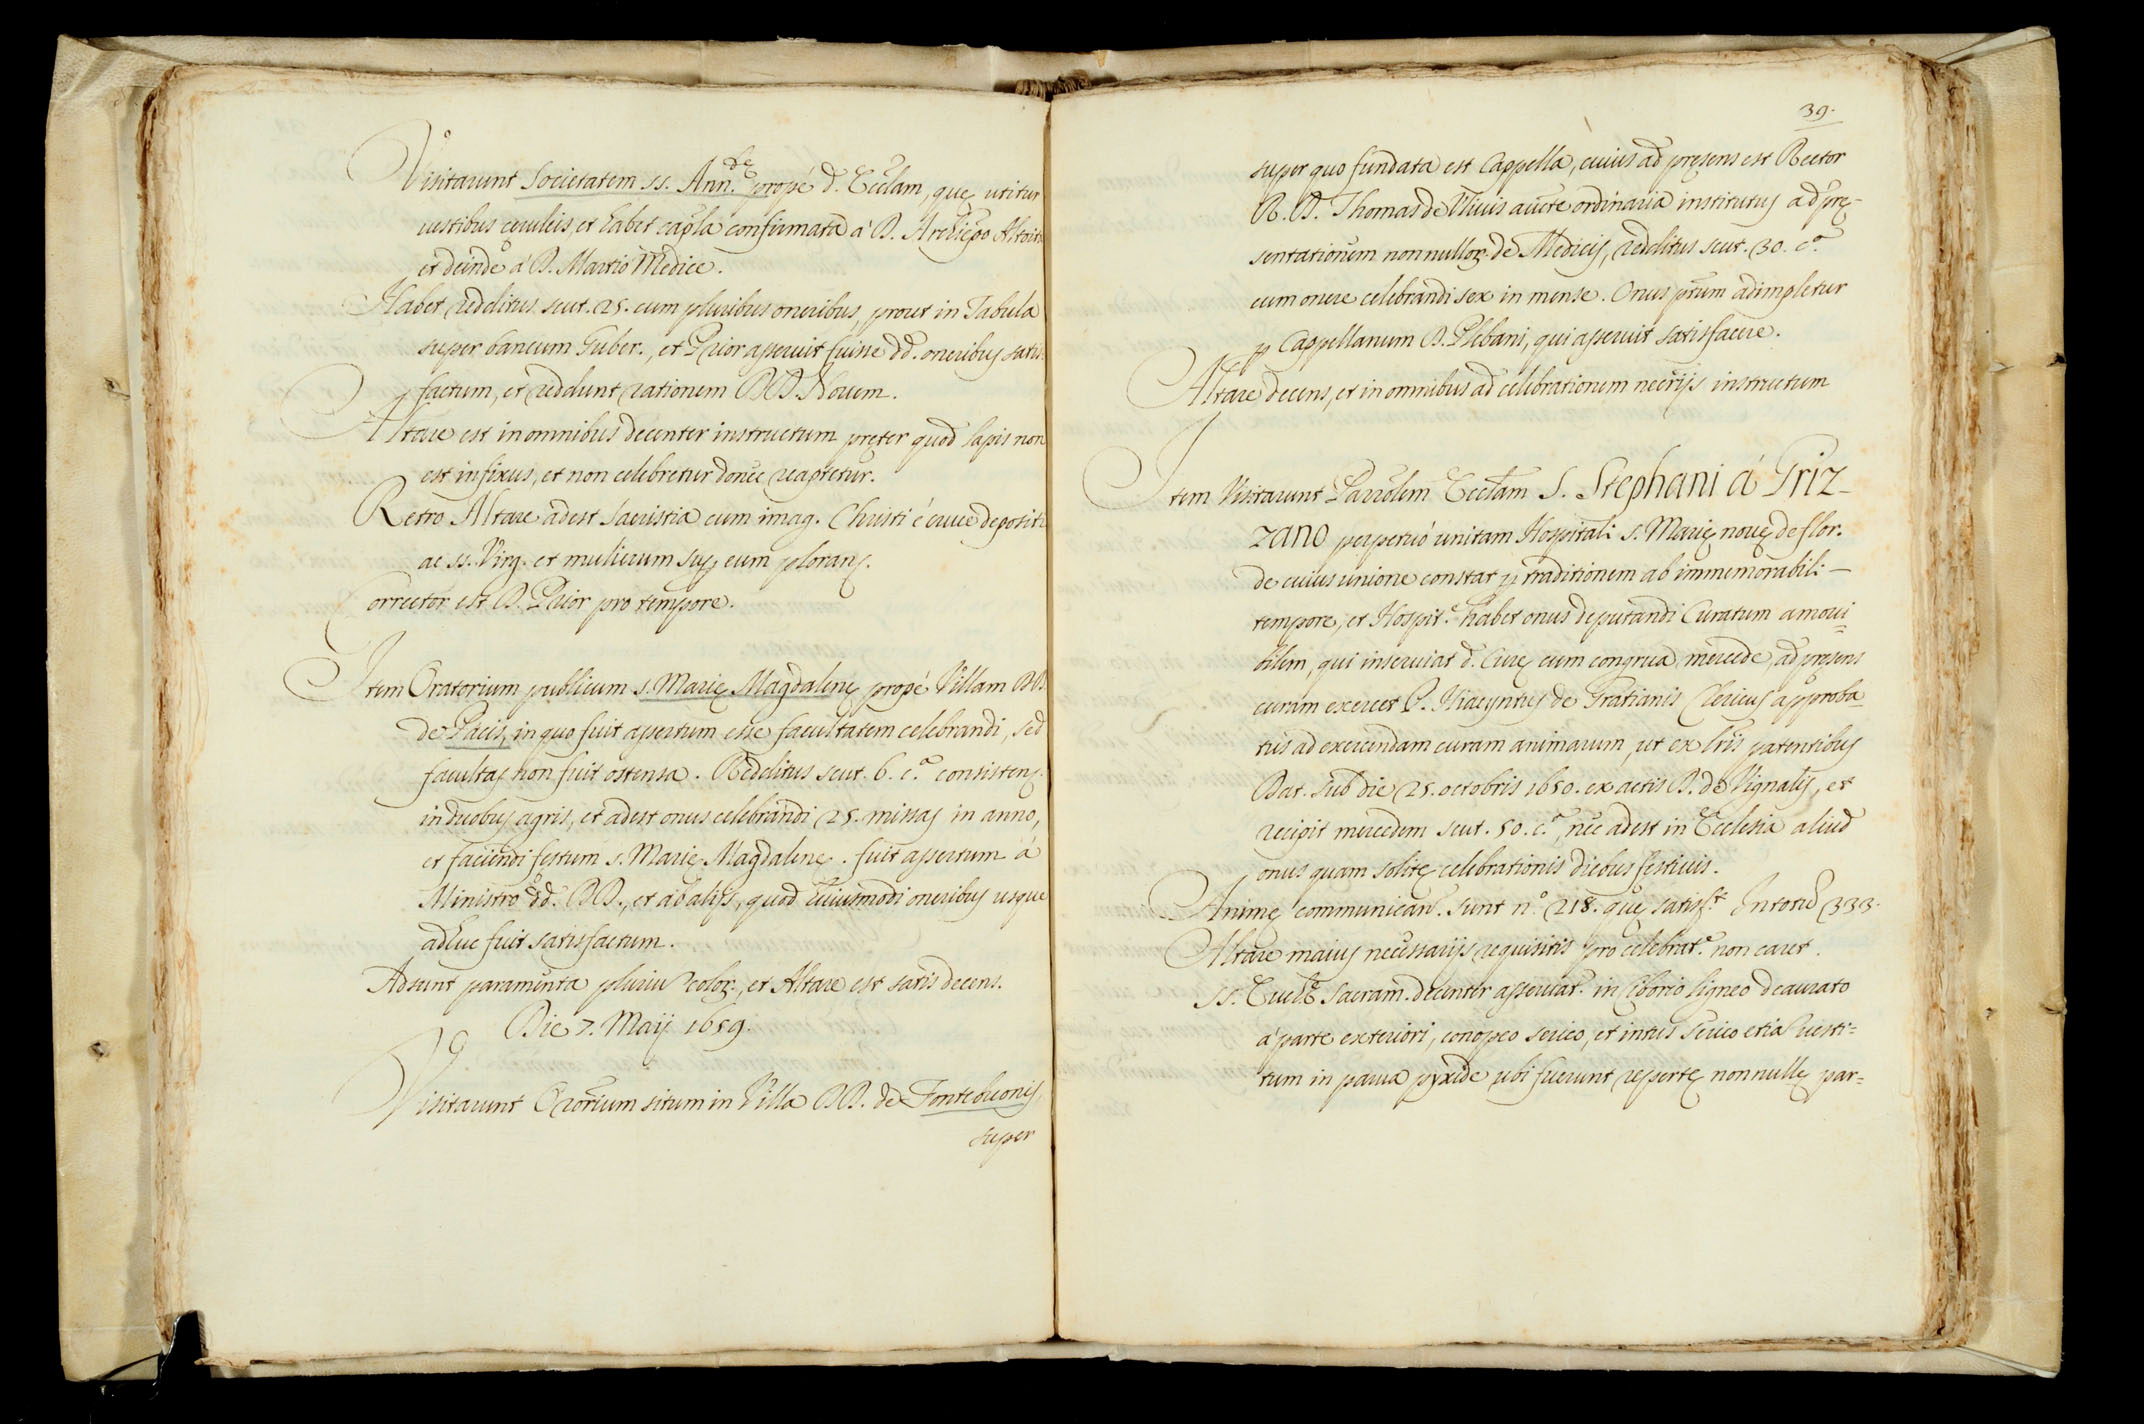 Visitarunt Societatem SS. Ann.tę propè d. Ecclam, quę utitur
vestibus ceruleis, et habet capla confirmata à D. Archiepo Altoit
et deinde à D. Martio Medice.
Habet redditus scut. 25. cum pluribus oneribus, prout in Tabula
super bancum Guber., et Prior asseruit fuisse dd. oneribus satis-
factum, et reddunt rationem DD. Novem.
Altare est in omnibus decenter instructum pręter quod lapis non
est infixus, et non celebretur donec reaptetur.
Retro Altare adest Sacristia cum imag. Christi è cruce depositi
ac SS. Virg. et mulierum sup. eum plorans.
Corrector est D. Prior pro tempore.
Item Oratorium publicum S. Marię Magdalenę propè Villam DD.
de Pacis, in quo fuit assertum esse facultatem celebrandi, sed
facultas non fuit ostensa. Redditus scut. 6. c.a consistens
in duobus agris, et adest onus celebrandi 25. missas in anno,
et faciendi festum S. Marię Magdalenę. fuit assertum à
Ministro dd. DD., et ab alijs, quod huiusmodi oneribus usque
adhuc fuit satisfactum.
Adsunt paramenta pluriu color., et Altare est satis decens.
Die 7. Maij 1659.
Visitarunt Oratorium situm in Villa DD. de Fontebuonis,
super
39.
super quo fundata est Cappella, cuius ad pręsens est Rector
R. D. Thomas de Vlivis aucte ordinaria institutus ad prę-
sentationem nonnullor. de Medicis, redditus scut. 30. c.a
cum onere celebrandi sex in mense. Onus prum adimpletur
p Cappellanum D. Plebani, qui asseruit satisfacere.
Altare decens, et in omnibus ad celebrationem necrijs instructum
Item Visitarunt Parrolem Ecclam S. Stephani à Griz-
zano perpetuò unitam Hospitali S. Marię nouę de flor.
de cuius unione constat p traditionem ab immemorabili
tempore, et Hospit.e habet onus deputandi Curatum amoui=
bilem, qui inseruiat d. Curę cum congrua mercede, ad pręsens
curam exercet P. Hiacyntus de Gratianis Clericus approba=
tus ad exercendam curam animarum, ut ex lris patentibus
Dat. sub die 25. octobris 1650. ex actis D. de Vignalis, et
recipit mercedem scut. 50. c.a, nec adest in Ecclesia aliud
onus quam solitę celebrationis diebus festiuis.
Animę communican. sunt n.o 218. quę satisf.t In totu 333.
Altare maius necessarijs requisitis pro celebrat.e non caret.
SS. Euchę Sacram. decenter asseruat. in Ciborio ligneo deaurato
à parte exteriori, conopeo serico, et intus serico etia vesti=
tum in parua pyxide ubi fuerunt repertę nonnullę par=